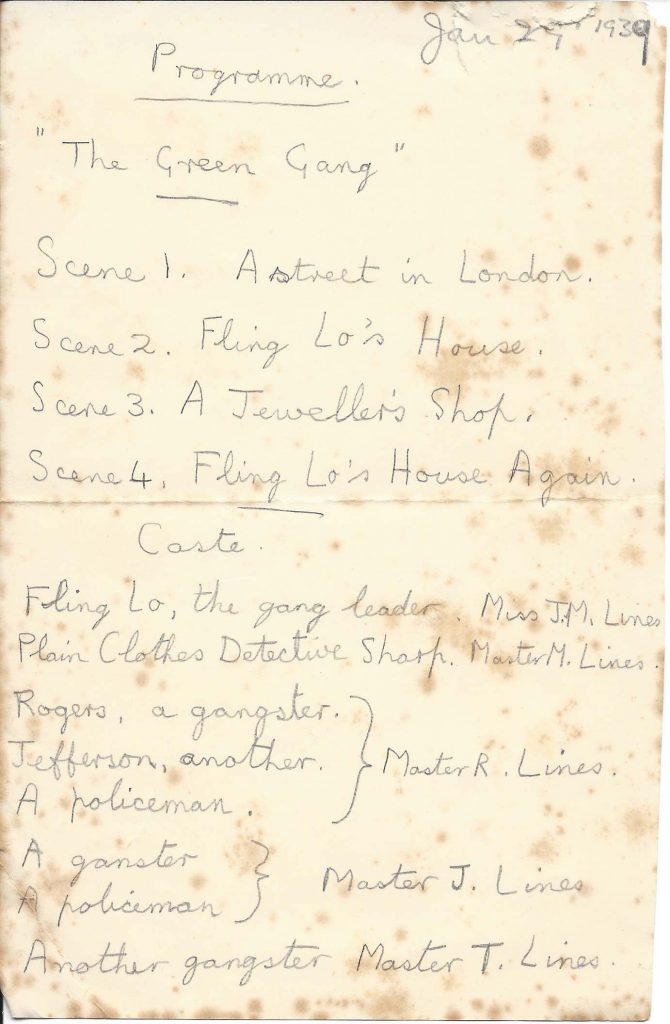 Jan 29 1939
Programme.
"The Green Gang"
Scene 1. A street in London.
Scene 2. Fling Lo's House.
Scene 3. A Jeweller's Shop.
Scene 4. Fling Lo's House Again.
Caste.
Fling Lo, the gang leader. Miss J.M. Lines
Plain Clothes Detective Sharp. Master M. Lines.
Rogers, a gangster.
Jefferson, another. Master R. Lines.
A policeman.
A ganster
A policeman Master J. Lines
Another gangster Master T. Lines.